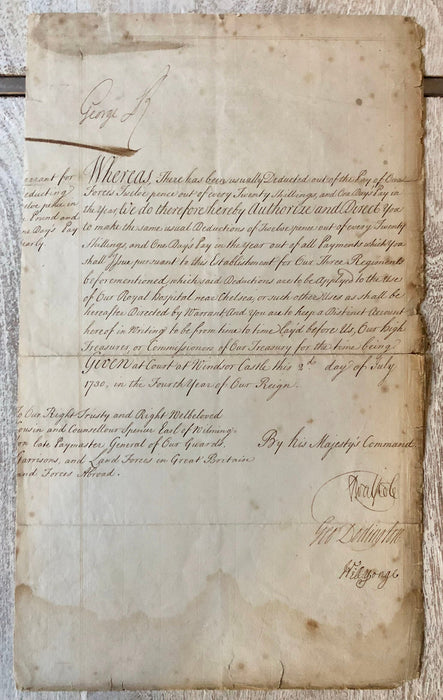 George R
Warrant for
deducting
Twelve pence in
Pound and
One Day's Pay
Yearly.
Whereas, There has been usually Deducted out of the Pay of Our
Forces Twelve pence out of every Twenty Shillings, and One Day's Pay in
the Year, We do therefore hereby Authorize and Direct You
to make the same usual Deductions of Twelve pence out of every Twenty
Shillings, and One Day's Pay in the Year out of all Payments which You
shall Issue pursuant to this Establishment for Our Three Regiments
beforementioned, which said Deductions are to be Apply'd to the Use
of Our Royal Hospital near Chelsea, or such other Uses as shall be
hereafter Directed by Warrant. And You are to keep a Distinct Account
hereof in Writing to be from time to time lay'd before Us, Our High
Treasurer, or Commissioners of Our Treasury for the time being
Given at Court at Windsor Castle this 2d day of July
1730, in the Fourth Year of Our Reign.
To Our Right Trusty and Right Welbeloved
Cousin and Counsellour Spencer Earl of Wilming-
ton late Paymaster General of Our Guards,
Garrisons, and Land Forces in Great Britain
and Forces Abroad.
By his Majesty's Command
RWalpole
Geo Dodington
Will Yonge